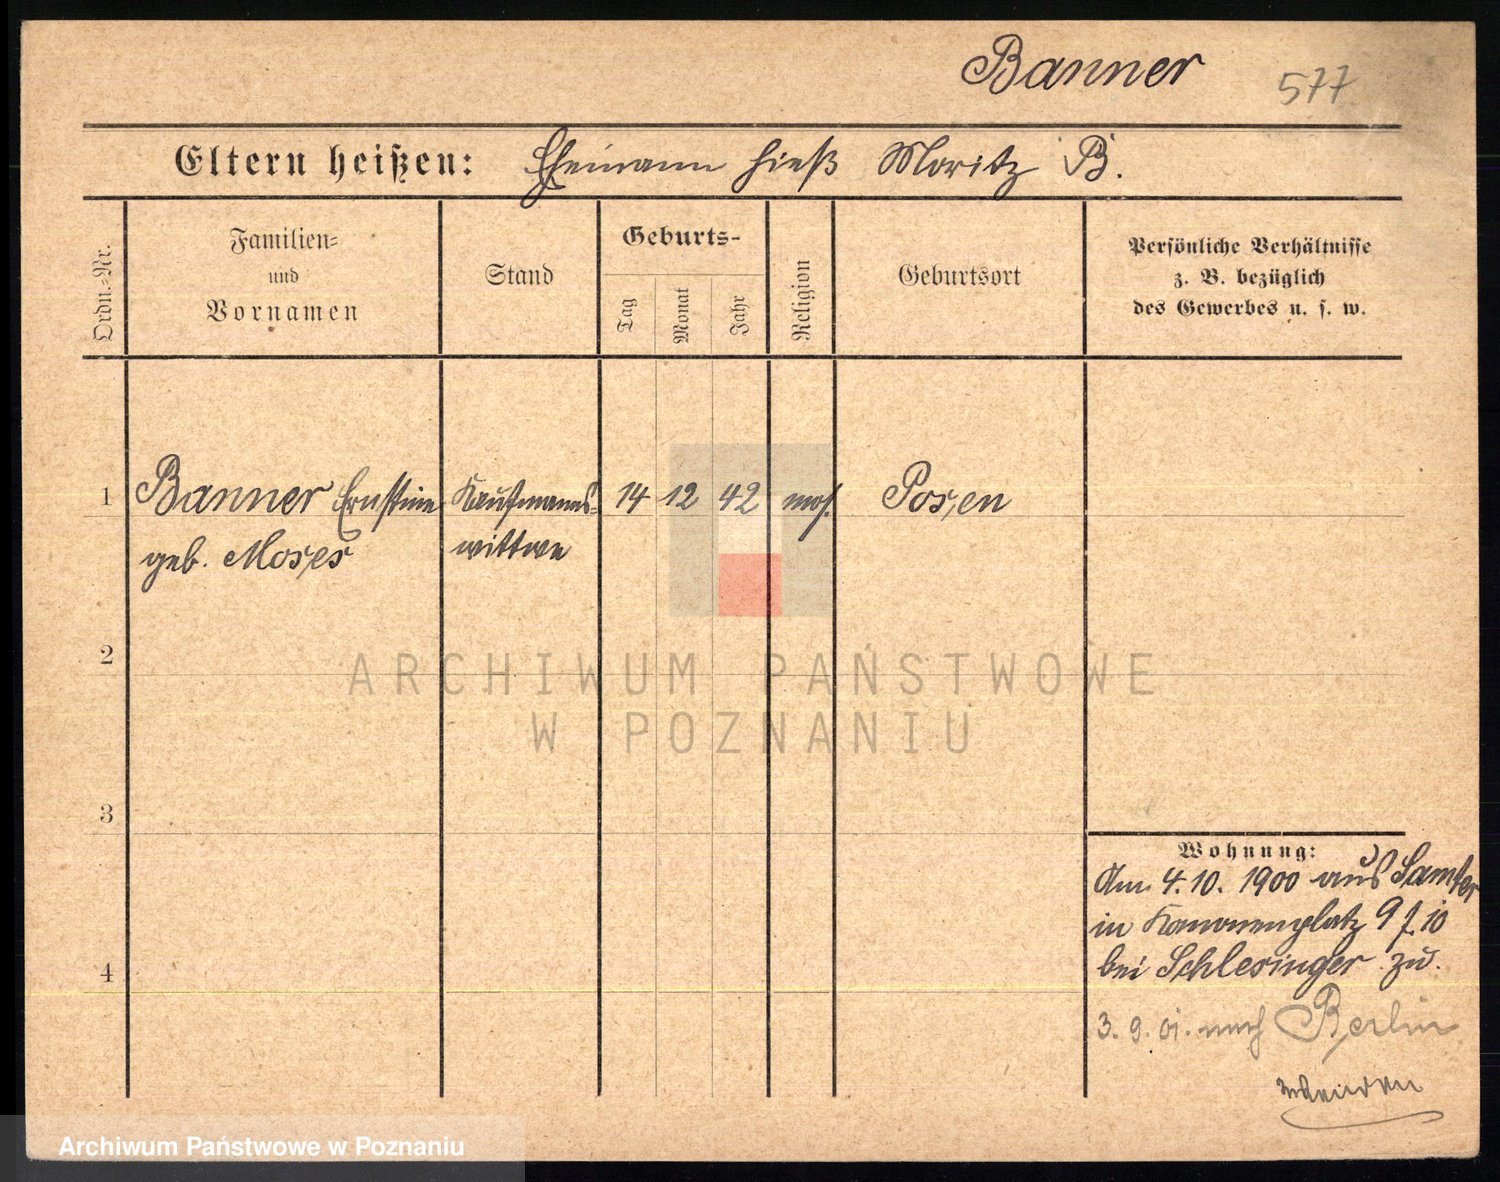 Banner 577
Eltern heißen: Ehemann hieß Moritz B.
Ordn.-Nr.
Familien-
und
Vornamen
Stand
Geburts-
Tag
Monat
Jahr
Religion
Geburtsort
Persönliche Verhältnisse
z. B. bezüglich
des Gewerbes u. s. w.
1 Banner Ernstine Kaufmanns- 14 12 42 mos. Posen
geb. Moses wittwe
2
ARCHIWUM PAŃSTWOWE
W POZNANIU
3
Wohnung:
Am 4.10. 1900 aus Samter
in Kanonenplatz 9 f. 10
bei Schlesinger zu.
4
3. 9. 01. nach Berlin
Archiwum Państwowe w Poznaniu